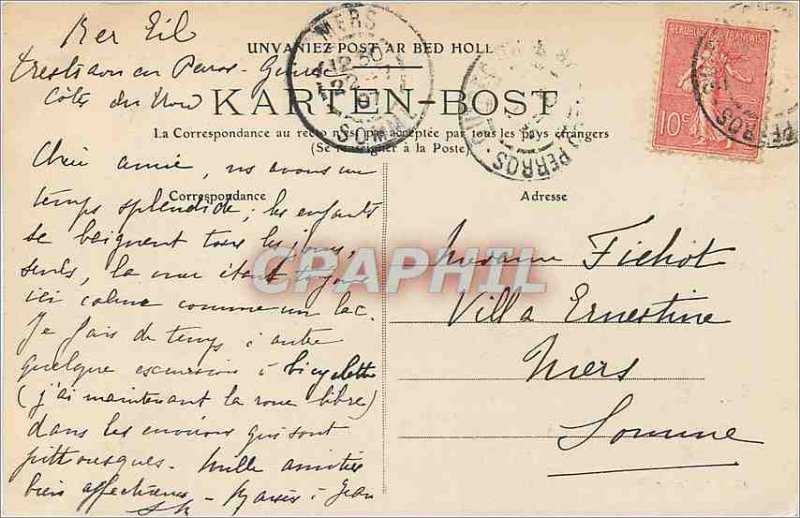 Ker Eil
Trestraou en Perros-Guirec
Côtes du Nord
UNVANIEZ POST AR BED HOLL
KARTEN-BOST
La Correspondance au recto n'est pas acceptée par tous les pays étrangers
(Se renseigner à la Poste)
Correspondance
Adresse
MERS
SOMME
PERROS
PERROS
REPUBLIQUE FRANÇAISE
10c
Chère amie, ns avons un
temps splendide; les enfants
se baignent tous les jours,
seuls, la mer étant toujours
ici calme comme un lac.
Je fais de temps à autre
quelque excursion à bicyclette
(j'ai maintenant la roue libre)
dans les environs qui sont
pittoresques. Mille amitiés
bien affectueuses
Madame Fichot
Villa Ernestine
Mers
Somme
CPAPHIL